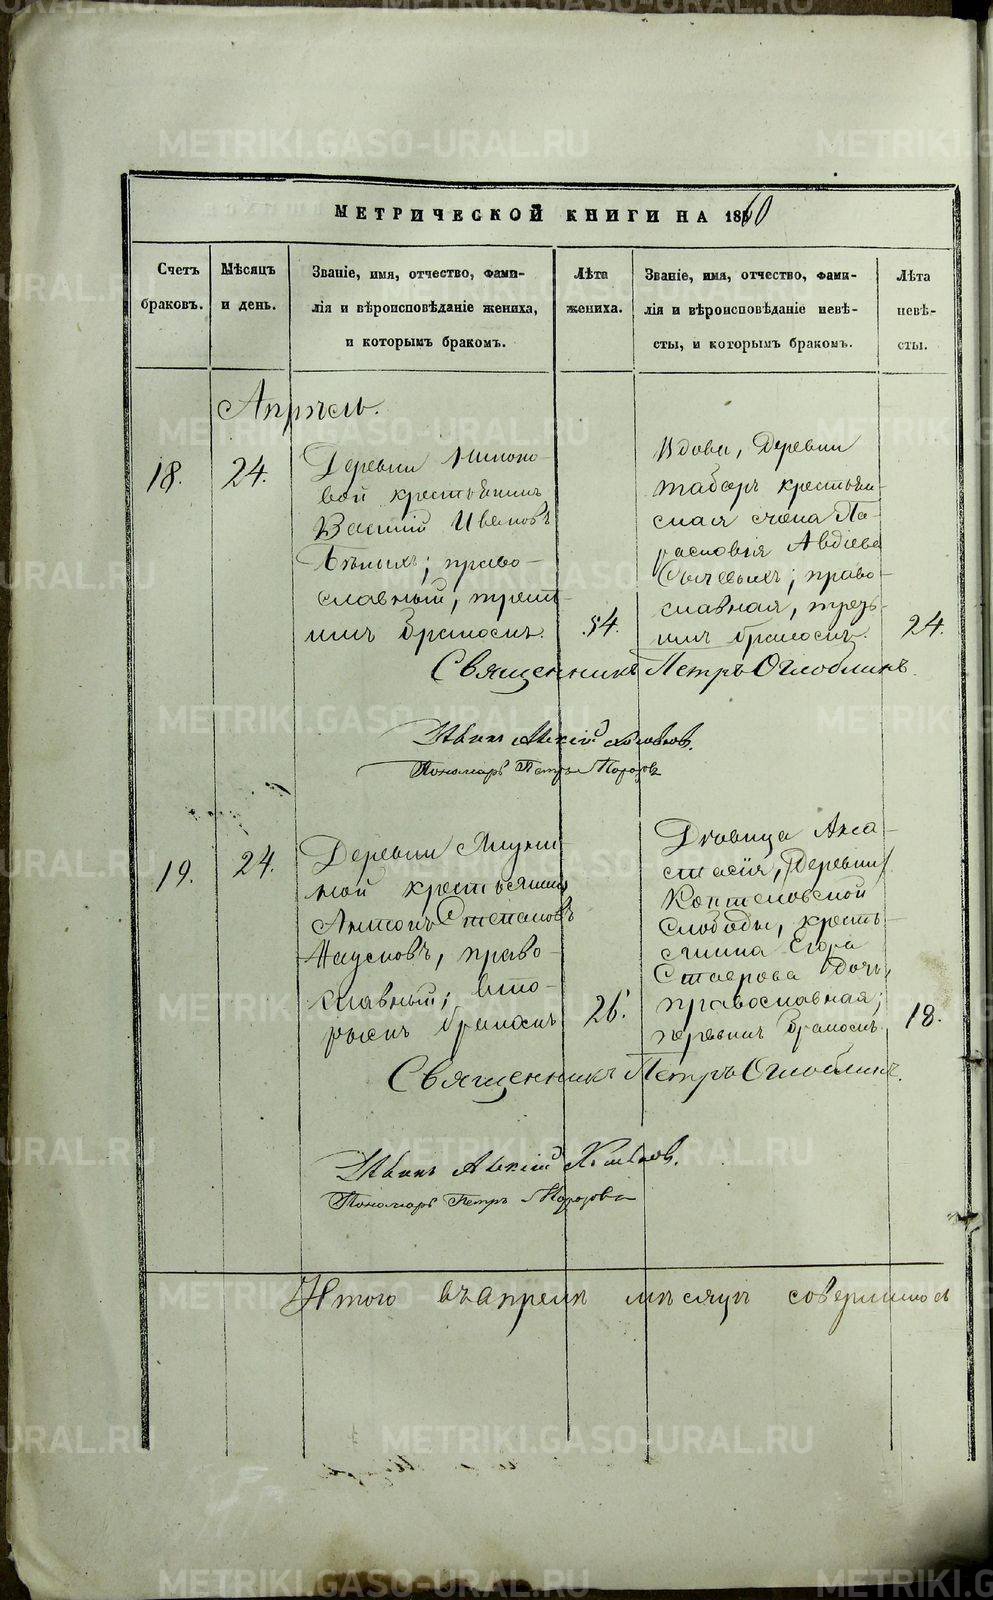 МЕТРИЧЕСКОЙ КНИГИ НА 1860
Счетъ браковъ.
Мѣсяцъ и день.
Званіе, имя, отчество, фами-
лія и вѣроисповѣданіе жениха,
и которымъ бракомъ.
Лѣта жениха.
Званіе, имя, отчество, фами-
лія и вѣроисповѣданіе невѣ-
сты, и которымъ бракомъ.
Лѣта невѣ-
сты.
Апрѣль.
18.
24.
Деревни
вой крестьянинъ
Василій Ивановъ
Бѣлыхъ; право-
славный, треть-
имъ бракомъ.
54.
Вдова, Деревни
Таборъ крестьян-
ская жена Па-
расковія Авдіева
Сычевыхъ; право-
славная, треть-
имъ бракомъ.
24.
Священникъ Петръ Оглоблинъ.
Дьякъ Алексій
Пономарь Петръ Морозовъ
19.
24.
Деревни
ной крестьянинъ
Антонъ Степановъ
право-
славный; вто-
рымъ бракомъ
26.
Дѣвица Ана-
стасія, Деревни
Коптеловской
Слободы, кресть-
янина Егора
дочь,
православная;
первымъ бракомъ.
18.
Священникъ Петръ Оглоблинъ.
Дьякъ Алексій
Пономарь Петръ Морозовъ
Итого въ апрелѣ мѣсяцѣ совершилось
METRIKI.GASO-URAL.RU